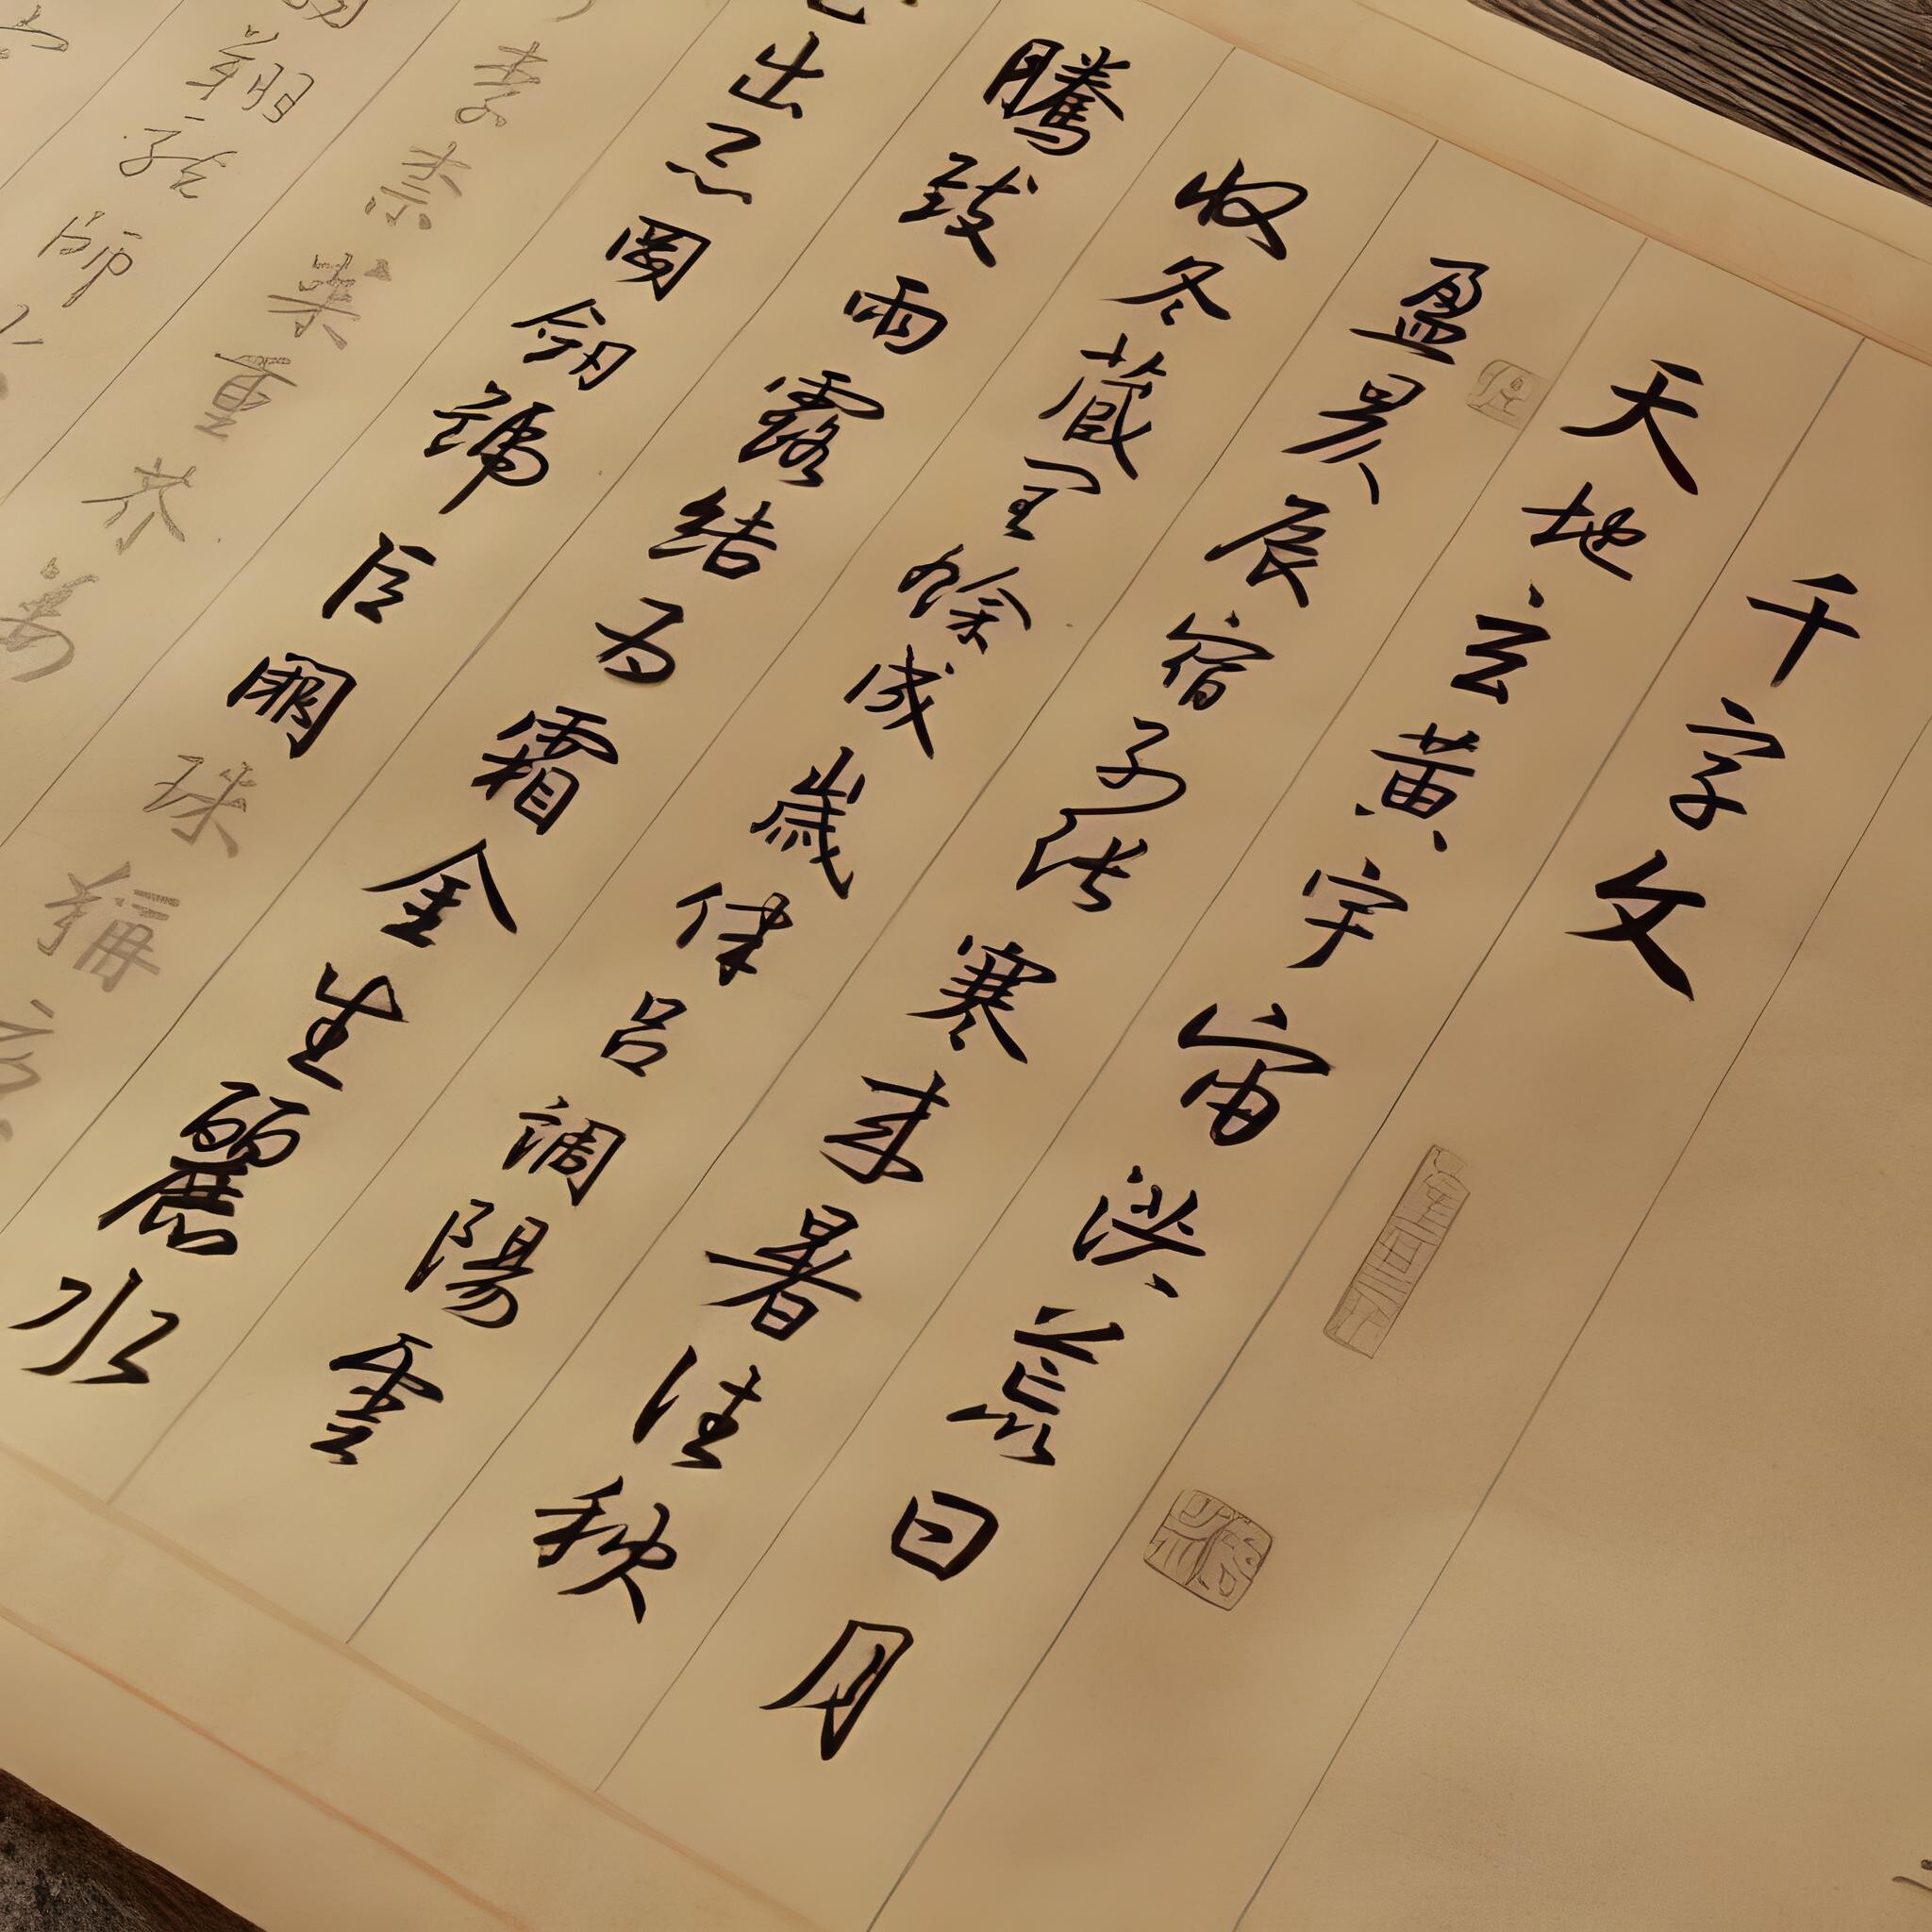 千字文
天地玄黃宇宙洪荒日月
盈昃辰宿列張寒來暑往秋
收冬藏閏餘成歲律呂調陽雲
騰致雨露結為霜金生麗水
出崑岡劍號巨闕珠稱
李柰菜重芥薑
翔龍師